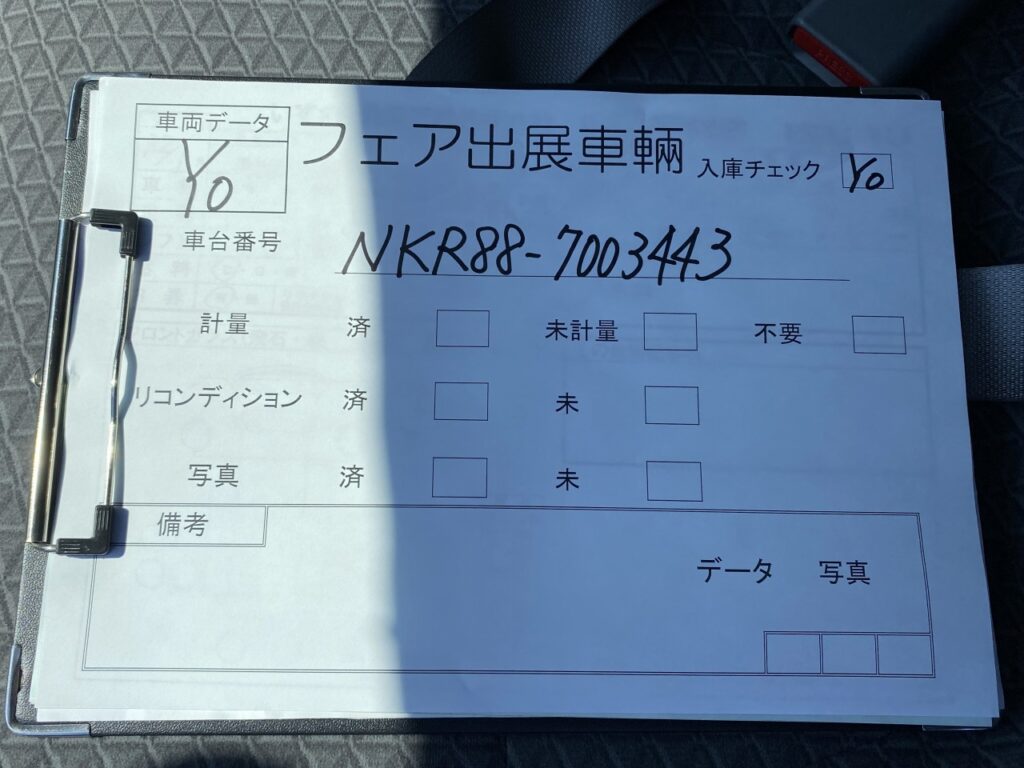 車両データ
Yo
フェア出展車輛 入庫チェック Yo
車台番号 NKR88-7003443
計量 済 未計量 不要
リコンディション 済 未
写真 済 未
備考
データ 写真